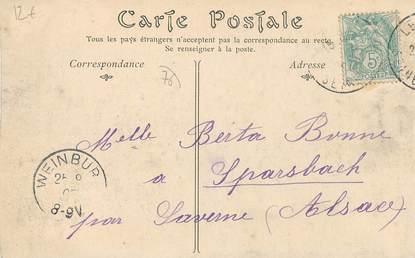 12 €
Carte Postale
Tous les pays étrangers n'acceptent pas la correspondance au recto.
Se renseigner à la poste.
Correspondance
Adresse
Melle Berta Bonne
a Sparsbach
par Saverne (Alsace)
WEINBUR
8-9V
5